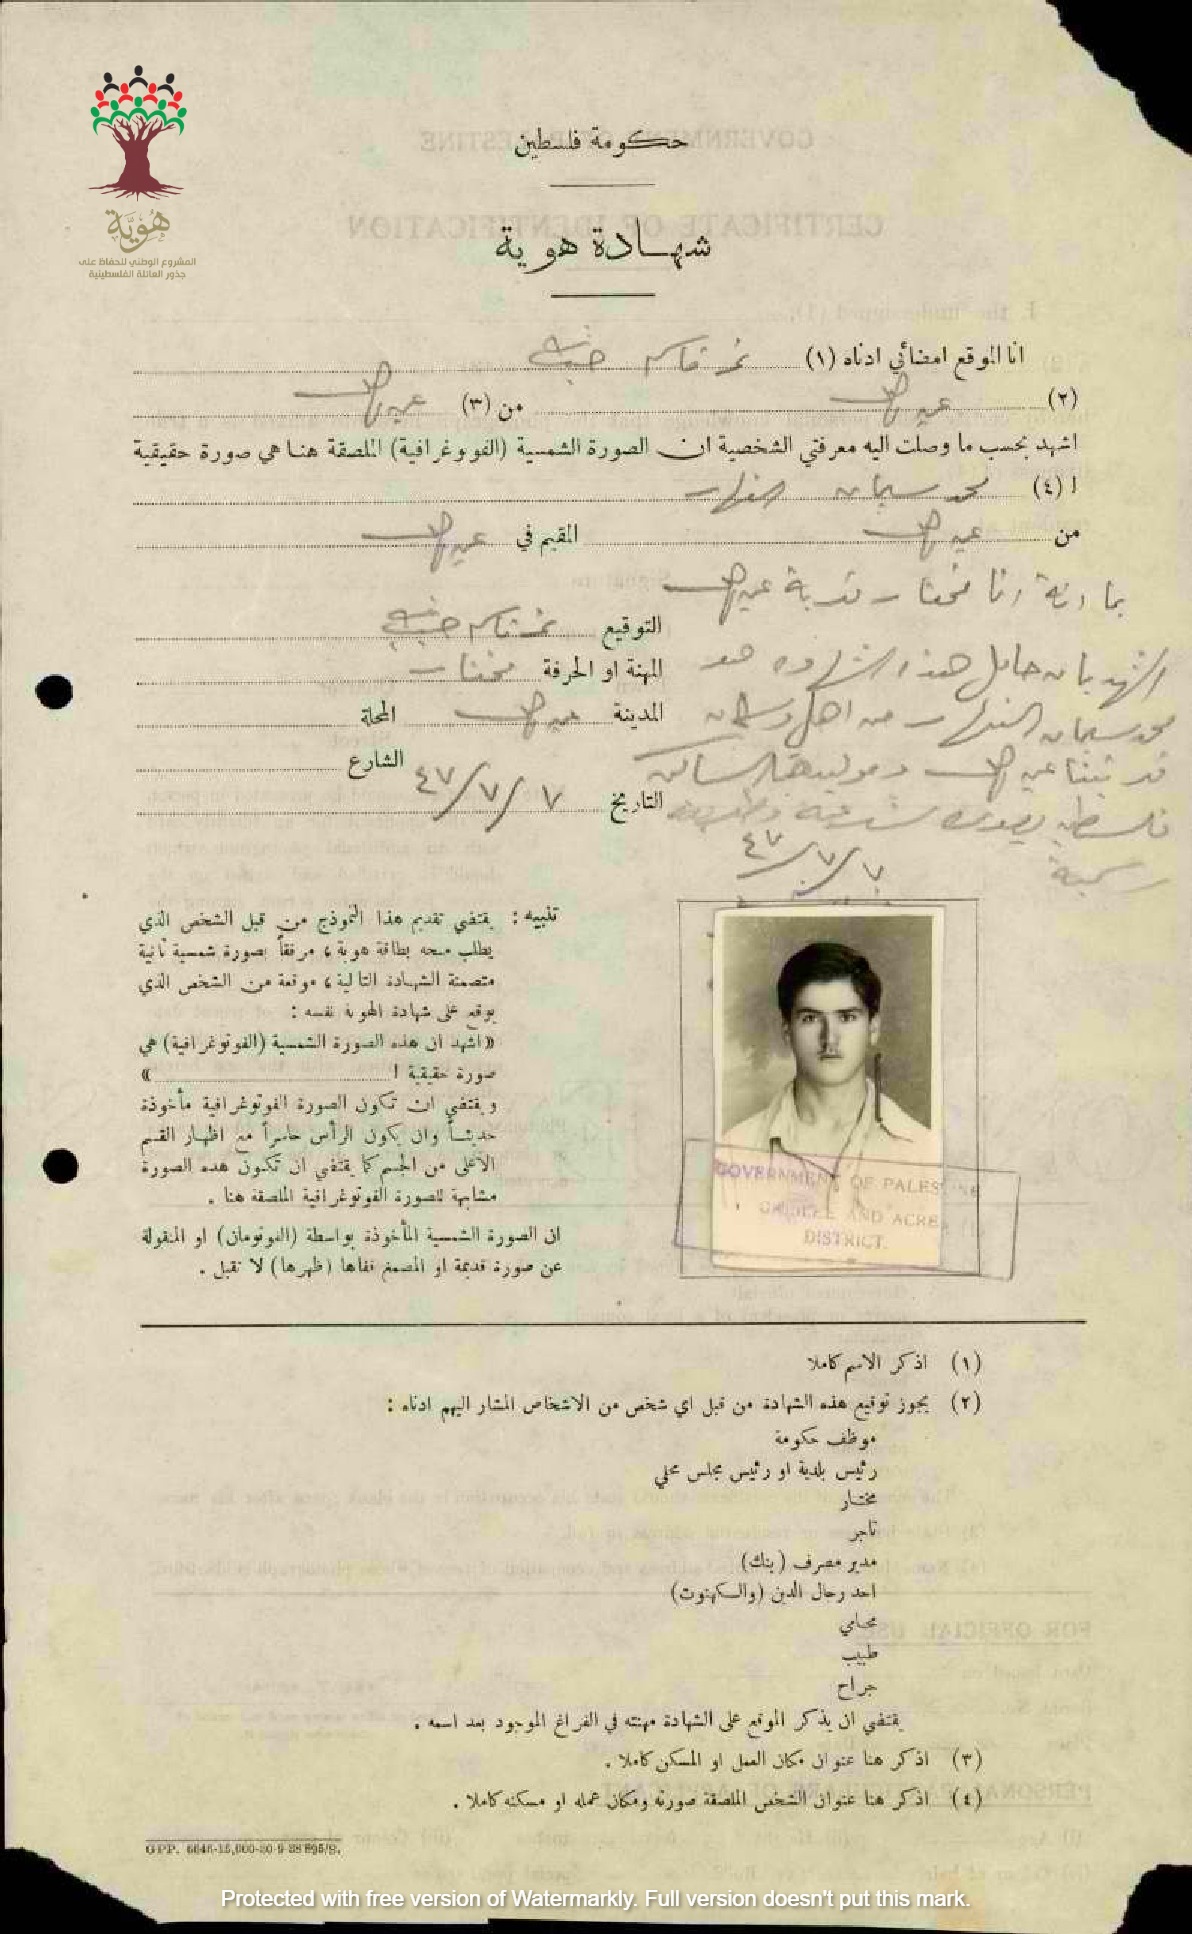 هُوِيَّة
المشروع الوطني للحفاظ على
جذور العائلة الفلسطينية
حكومة فلسطين
شهادة هوية
انا الموقع امضائي ادناه (١) نمر قاسم
(٢) من (٣)
اشهد بحسب ما وصلت اليه معرفتي الشخصية ان الصورة الشمسية (الفوتوغرافية) الملصقة هنا هي صورة حقيقية
ا (٤) محمد سليمان
من المقيم في
بما انه انا مختار قرية
التوقيع نمر قاسم
اشهد بان حامل هذا الشهاده هو
المهنة او الحرفة مختار
محمد سليمان من اهل وسكان
المدينة المحلة
الشارع
التاريخ ٧/٧/٤٧
رسمية
٧/٧/٤٧
تنبيه : يقتضي تقديم هذا النموذج من قبل الشخص الذي
يطلب منحه بطاقة هوية ، مرفقاً بصورة شمسية ثانية
متضمنة الشهادة التالية ، موقعة من الشخص الذي
يوقع على شهادة الهوية نفسه :
«اشهد ان هذه الصورة الشمسية (الفوتوغرافية) هي
صورة حقيقية ا »
ويقتضي ان تكون الصورة الفوتوغرافية مأخوذة
حديثاً وان يكون الرأس حاسراً مع اظهار القسم
الأعلى من الجسم كما يقتضي ان تكون هذه الصورة
مشابهة للصورة الفوتوغرافية الملصقة هنا .
ان الصورة الشمسية المأخوذة بواسطة (الفوتومان) او المنقولة
عن صورة قديمة او المصمغ قفاها (ظهرها) لا تقبل .
GOVERNMENT OF PALESTINE
GALILEE AND ACRE
DISTRICT.
(١) اذكر الاسم كاملا
(٢) يجوز توقيع هذه الشهادة من قبل اي شخص من الاشخاص المشار اليهم ادناه :
موظف حكومة
رئيس بلدية او رئيس مجلس محلي
مختار
تاجر
مدير مصرف (بنك)
احد رجال الدين (والكهنوت)
محامي
طبيب
جراح
يقتضي ان يذكر الموقع على الشهادة مهنته في الفراغ الموجود بعد اسمه .
(٣) اذكر هنا عنوان مكان العمل او المسكن كاملا .
(٤) اذكر هنا عنوان الشخص الملصقة صورته ومكان عمله او مسكنه كاملا .
GPP. 6646-15,000-30-9-38 895/S.
Protected with free version of Watermarkly. Full version doesn't put this mark.